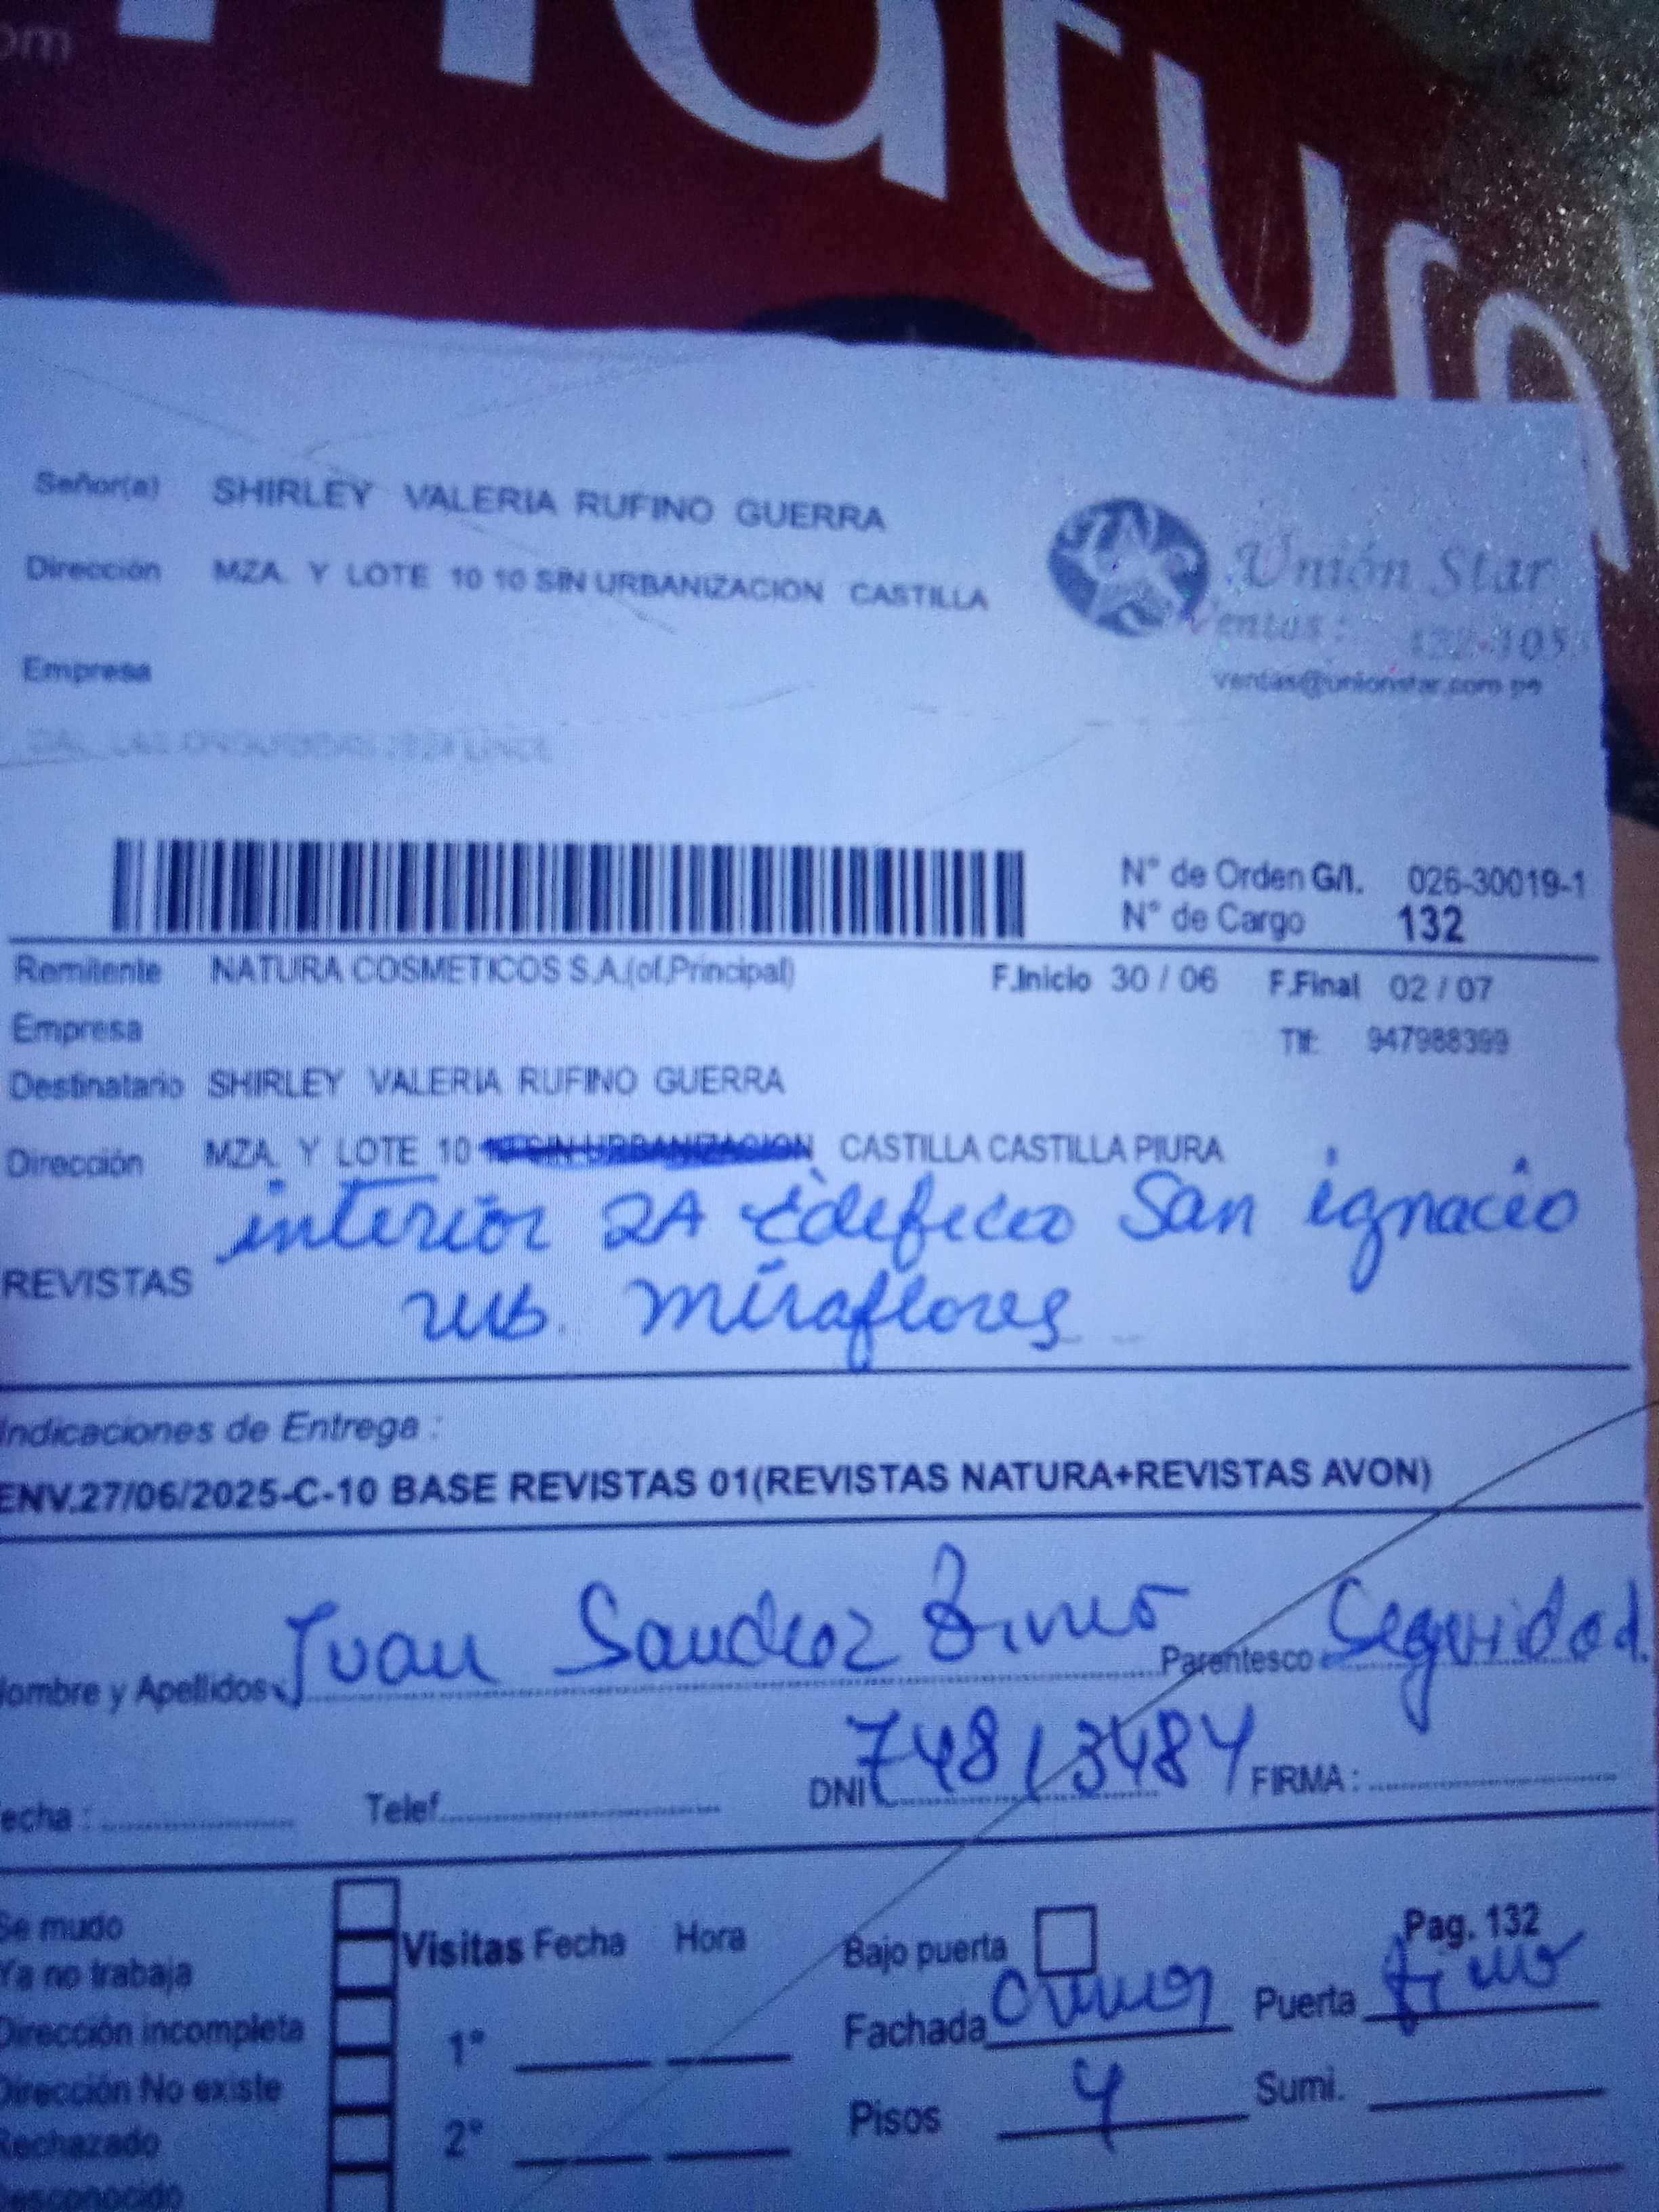 om
natura
Señor(a) SHIRLEY VALERIA RUFINO GUERRA
Dirección MZA. Y LOTE 10 10 SIN URBANIZACION CASTILLA
Unión Star
Ventas:
ventas@unionstar.com.pe
Empresa
N° de Orden G/l. 026-30019-1
N° de Cargo 132
Remitente NATURA COSMETICOS S.A.(of.Principal) F.Inicio 30 / 06 F.Final 02 / 07
Empresa Tlf: 947988399
Destinatario SHIRLEY VALERIA RUFINO GUERRA
Dirección MZA. Y LOTE 10 10 SIN URBANIZACION CASTILLA CASTILLA PIURA
interior 2A Edeficio San ignacio
REVISTAS urb. miraflores
Indicaciones de Entrega :
ENV.27/06/2025-C-10 BASE REVISTAS 01(REVISTAS NATURA+REVISTAS AVON)
ombre y Apellidos Juan Sanchez Parentesco Seguridad.
echa : Telef. DNI 74813484 FIRMA :
Se mudo
Ya no trabaja
Dirección incompleta
Dirección No existe
Rechazado
Desconocido
Visitas Fecha Hora
1°
2°
Bajo puerta Pag. 132
Fachada Puerta
Pisos 4 Sumi.